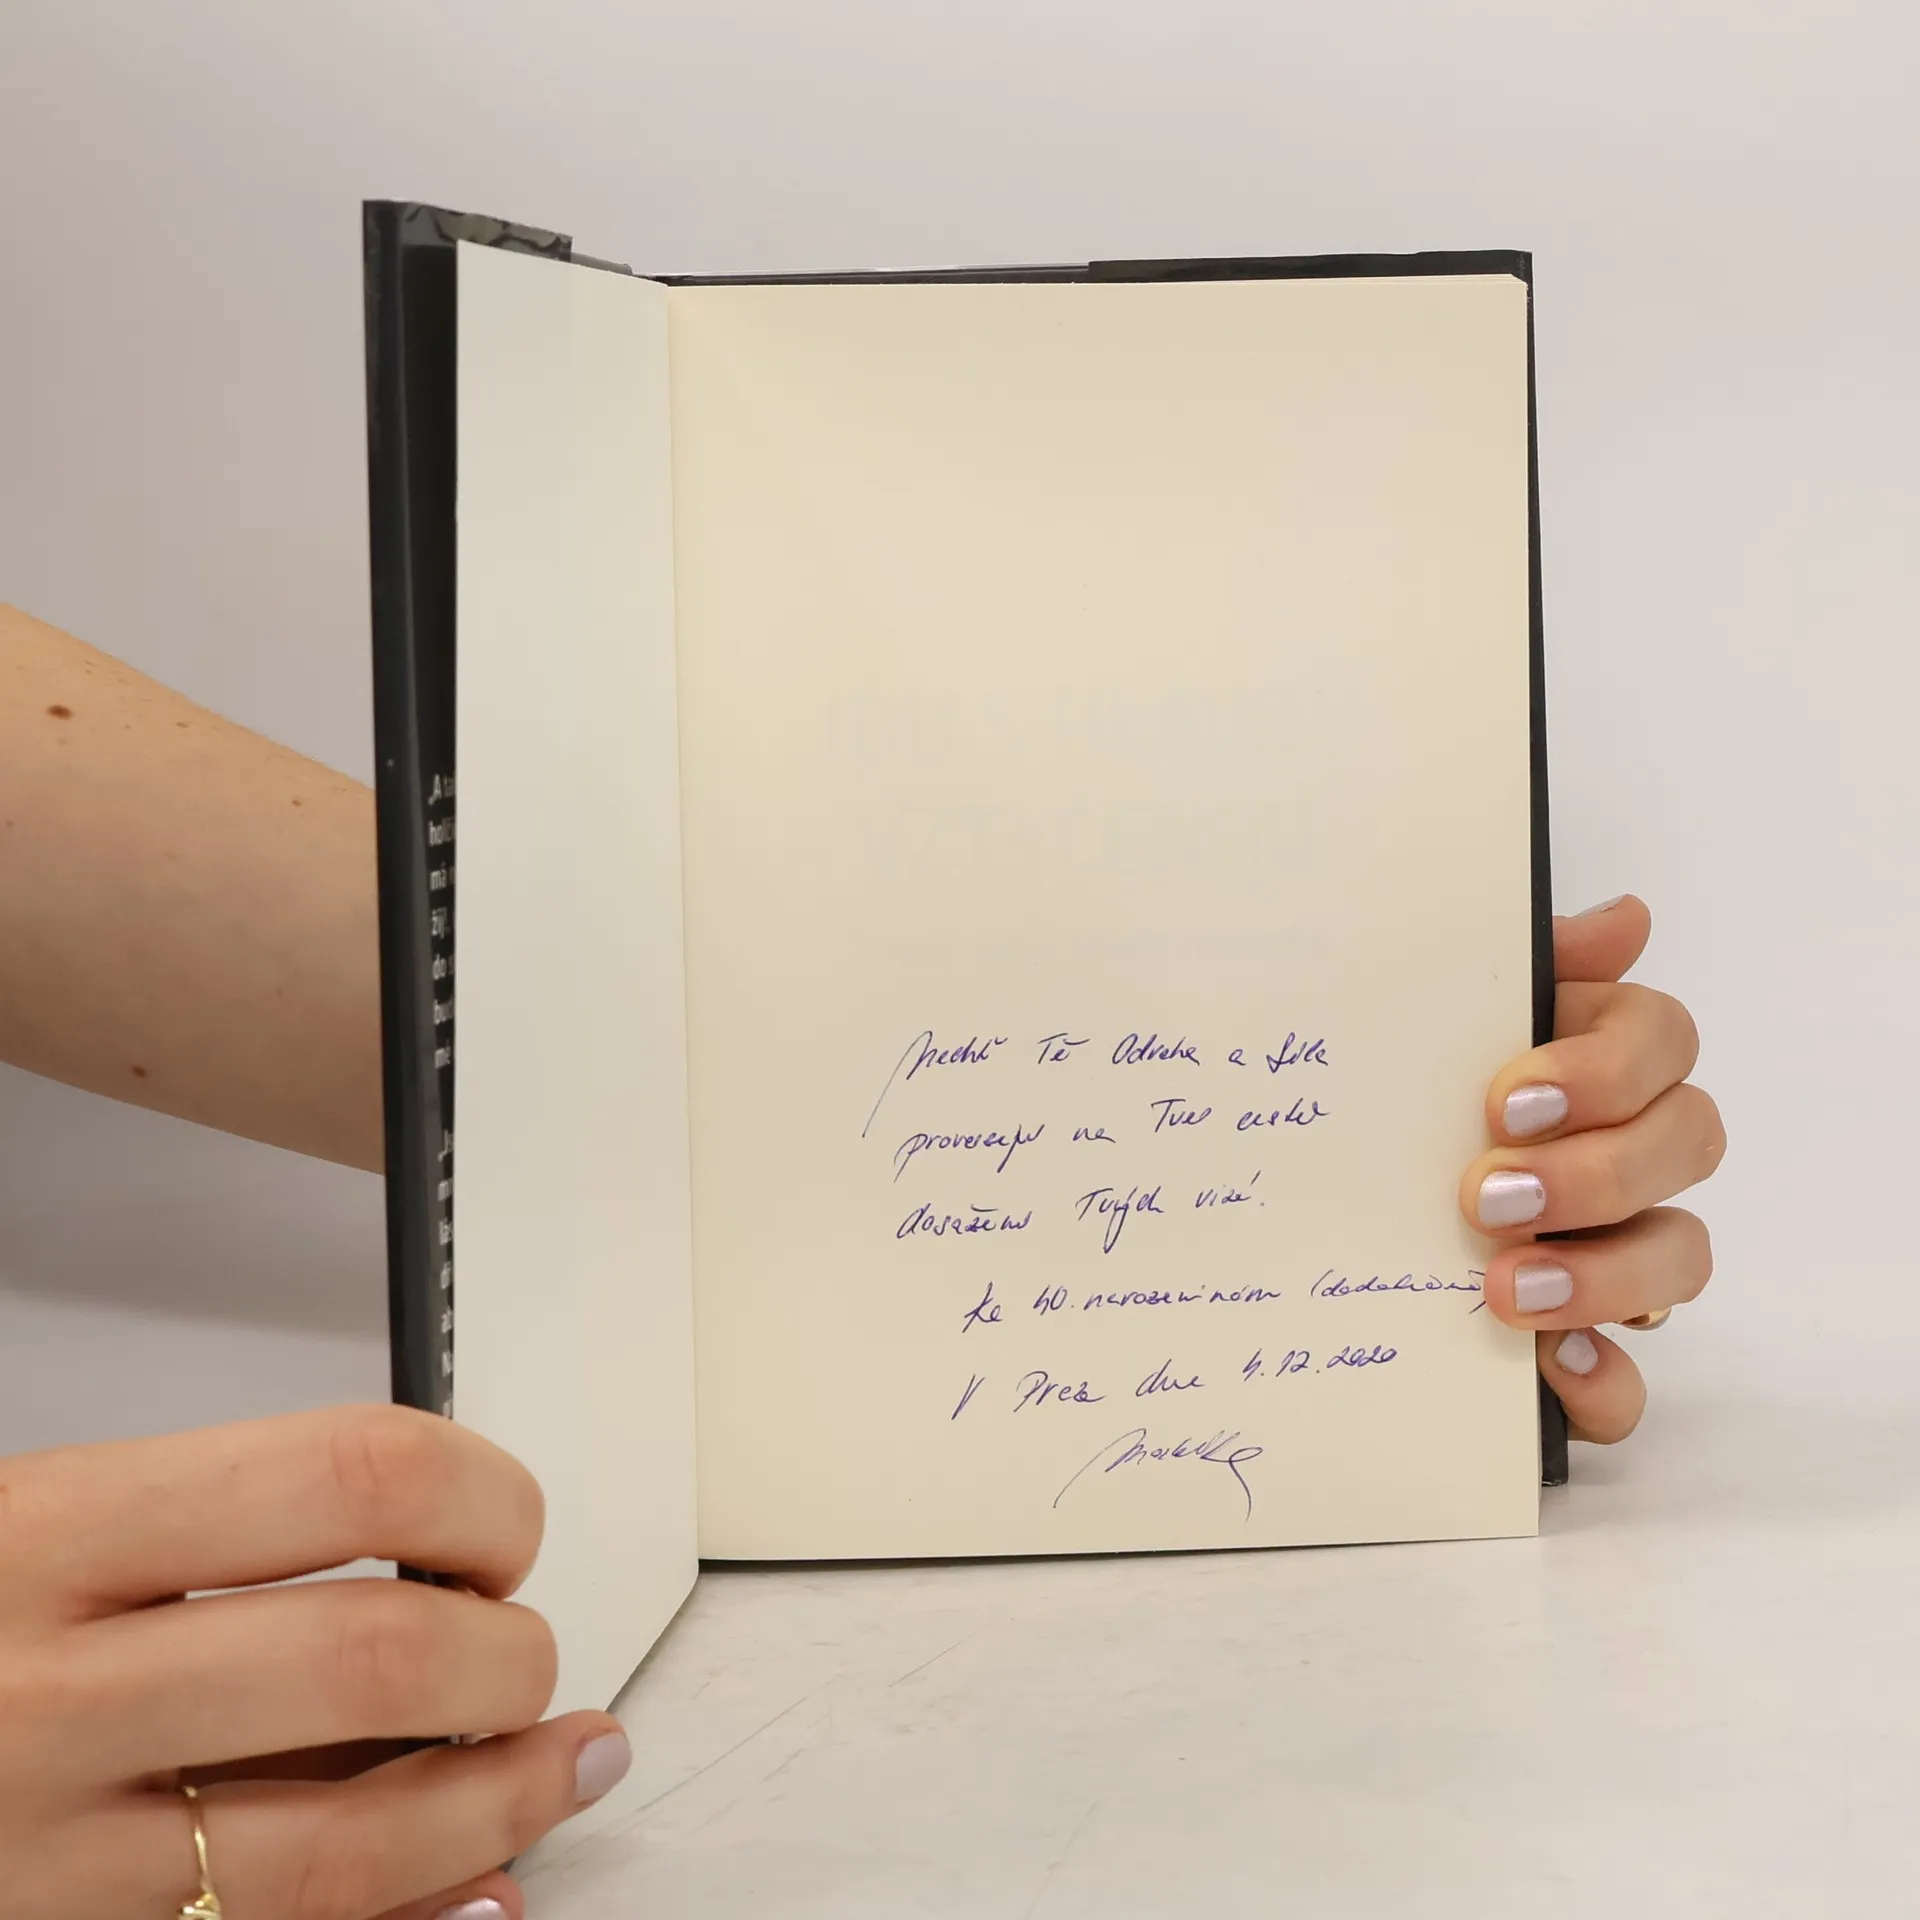 Nechť Tě Odvaha a Síla
provázejí na Tvé cestě
dosažení Tvých vizí.
Ke 40. narozeninám (dodatečně)
V Praze dne 4.12.2020
„A
má
žij.
do
mé